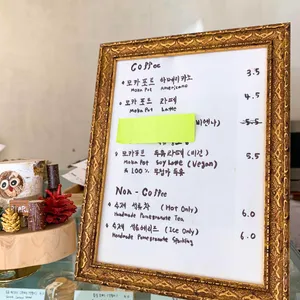 Coffee
모카포트 아메리카노 3.5
Moka Pot Americano
모카포트 라떼 4.5
Moka Pot Latte
(비엔나) 5.5
모카포트 두유라떼 (비건) 5.5
Moka Pot Soy Latte (Vegan)
100% 무첨가 두유
Non-Coffee
수제 석류차 (Hot Only) 6.0
Handmade Pomegranate Tea
수제 석류에이드 (Ice Only) 6.0
Handmade Pomegranate Sparkling